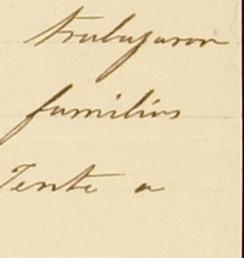 trabajaron
familias
Tente a